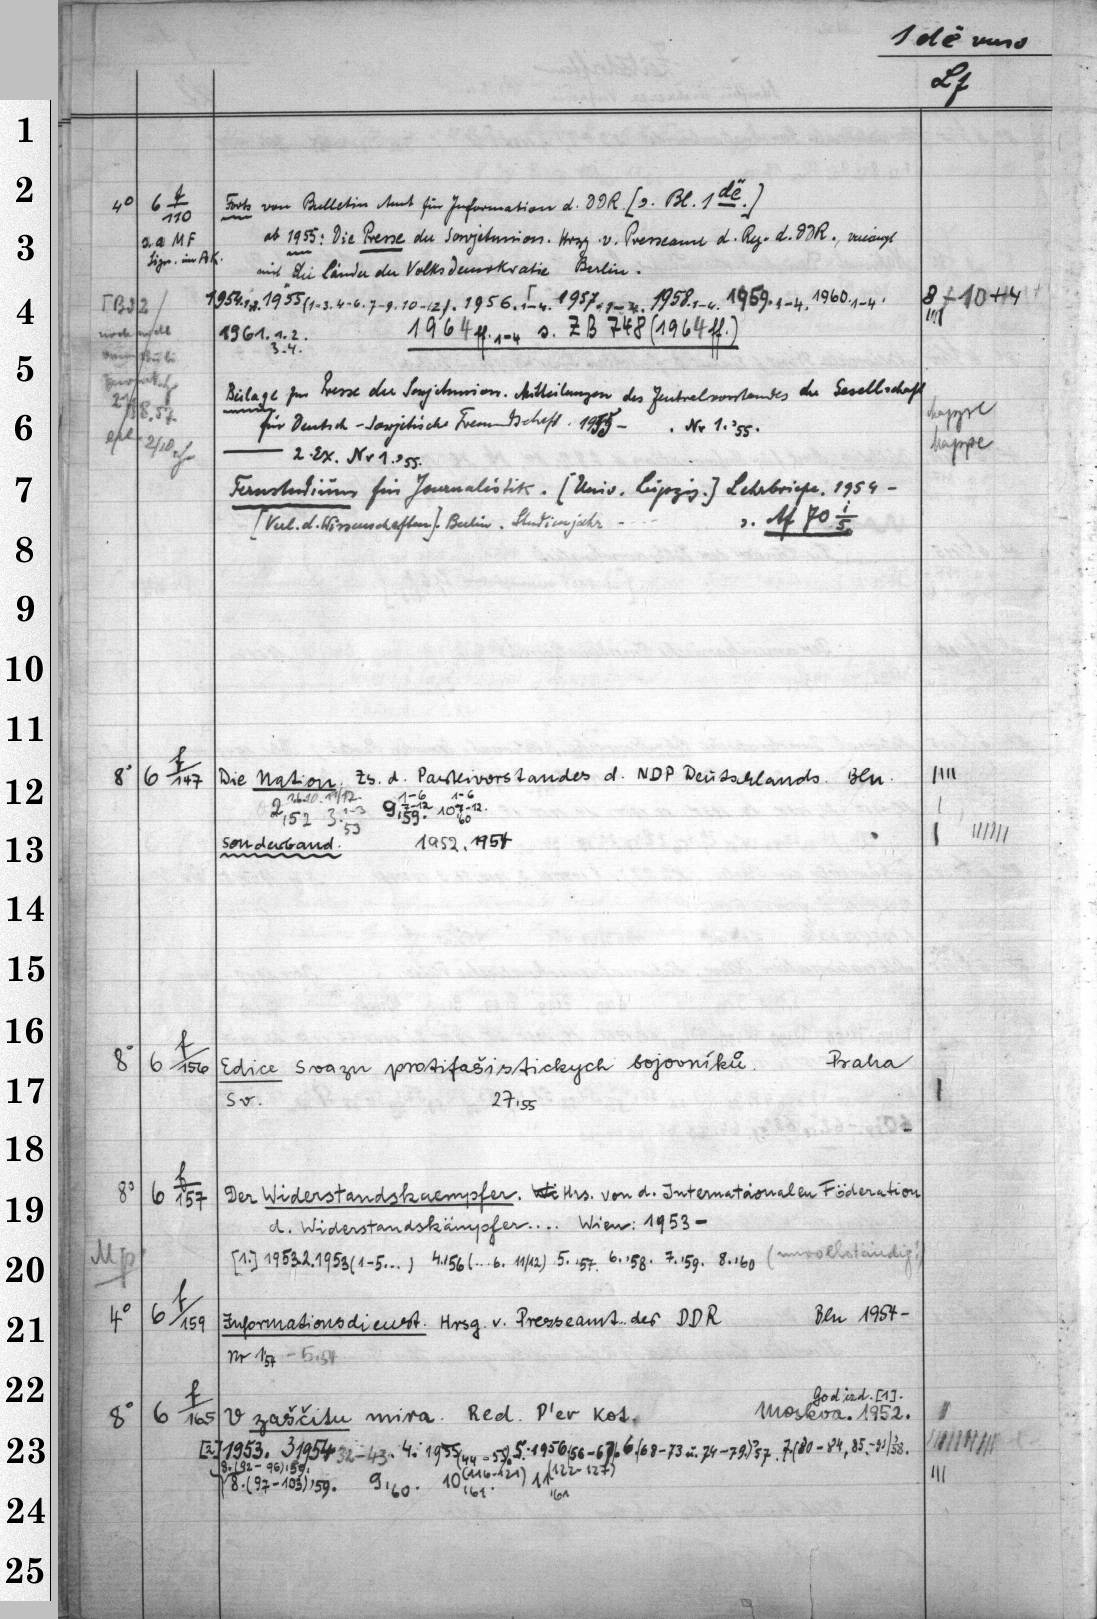 1 dë verso
Lf
1
2
4° 6 f/110 Forts von Bulletin Amt für Information d. DDR. [s. Bl. 1 dë.]
3
s. a MF ab 1955: Die Presse der Sowjetunion. Hrsg. v. Presseamt d. Reg. d. DDR., vereinigt
Sign. im AK. mit Die Länder der Volksdemokratie Berlin.
4
1954. 1955 (1-3. 4-6. 7-9. 10-12). 1956. 1-4. 1957. 1958. 1-4. 1959. 1-4. 1960. 1-4. 8 + 10 + 4
1961. 1.2. 3.4. 1964 ff. 1-4 s. ZB 748 (1964 ff.)
5
Beilage zur Presse der Sowjetunion. Mitteilungen des Zentralvorstandes der Gesellschaft
6
für Deutsch-Sowjetische Freundschaft. 1955- . Nr 1.'55. Mappe
2. Ex. Nr 1.'55. Mappe
7
Fernstudium für Journalistik. [Univ. Leipzig.] Lehrbriefe. 1954-
[Verl. d. Wissenschaften]. Berlin. Studienjahr - - - - s. Af 70 i/5.
8
9
10
11
8° 6 f/147 Die Nation. Zs. d. Parteivorstandes d. NDP Deutschlands. Bln.
12
2,'52 3. 1-3 53 9,'59. 1-6 7-12 10 1-6 7-12. 60
13
Sonderband. 1952. 1954
14
15
16
8° 6 f/156 Edice Svazu protifašistickych bojovníků. Praha
17
Sv. 27,'55
18
8° 6 f/157 Der Widerstandskaempfer. Hrs. von d. Internationalen Föderation
19
d. Widerstandskämpfer.... Wien: 1953-
20
[1.] 1953. 2. 1953 (1-5...) 4.'56 (...6. 11/12) 5.'57. 6.'58. 7.'59. 8.'60 (unvollständig!)
4° 6 f/159 Informationsdienst. Hrsg. v. Presseamt der DDR Bln 1954-
21
Nr 1,57 - 5,57
22
God izd. [1].
8° 6 f/165 V zaščitu mira. Red. P'er Kot. Moskva. 1952.
23
[2] 1953. 3 1954 32-43. 4. 1955 (44-55) 5. 1956 (56-67) 6. (68-73 u. 74-79.) '57. 7. (80-84, 85-91) '58.
8. (92-96), 59.
8. (97-103), 59. 9,'60. 10 (116-121) '61. 11 (122-127) '61
24
25